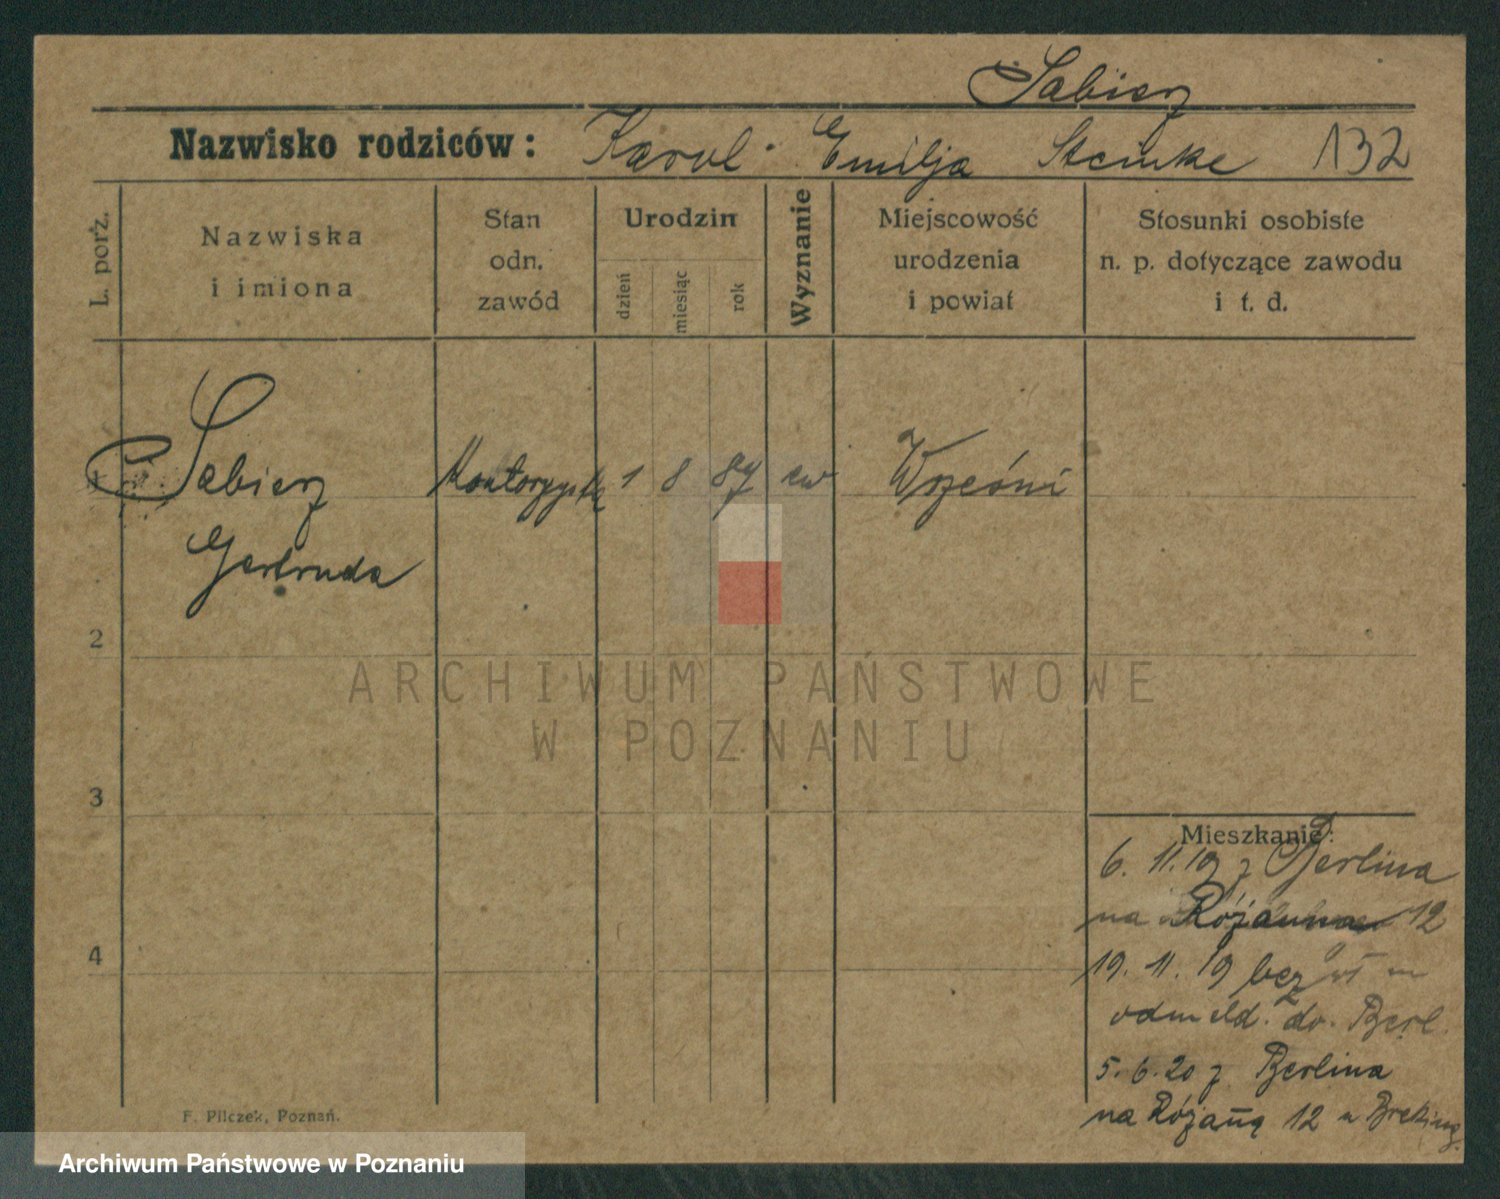 Sabierz
Nazwisko rodziców: Karol Emilja Steinke 132
L. porz.
Nazwiska i imiona
Stan odn. zawód
Urodzin
dzień
miesiąc
rok
Wyznanie
Miejscowość urodzenia i powiat
Stosunki osobiste n. p. dotyczące zawodu i t. d.
Sabierz 1 8 87 ew
Gertruda
2
3
4
ARCHIWUM PAŃSTWOWE
W POZNANIU
Mieszkanie:
6. 11. 19 z Berlina
na Różanna 12
19. 11. 19 bez
odmeld. do Berl.
5. 6. 20 z Berlina
na Różaną 12
F. Pilczek, Poznań.
Archiwum Państwowe w Poznaniu